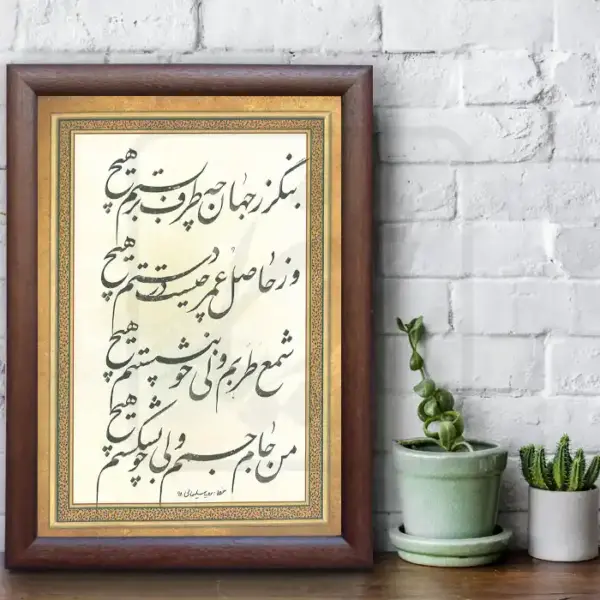 بنگر ز جهان چه طرف بربستم هیچ
وز حاصل عمر چیست در دستم هیچ
شمع طربم ولی چو بنشستم هیچ
من جام جمم ولی چو بشکستم هیچ